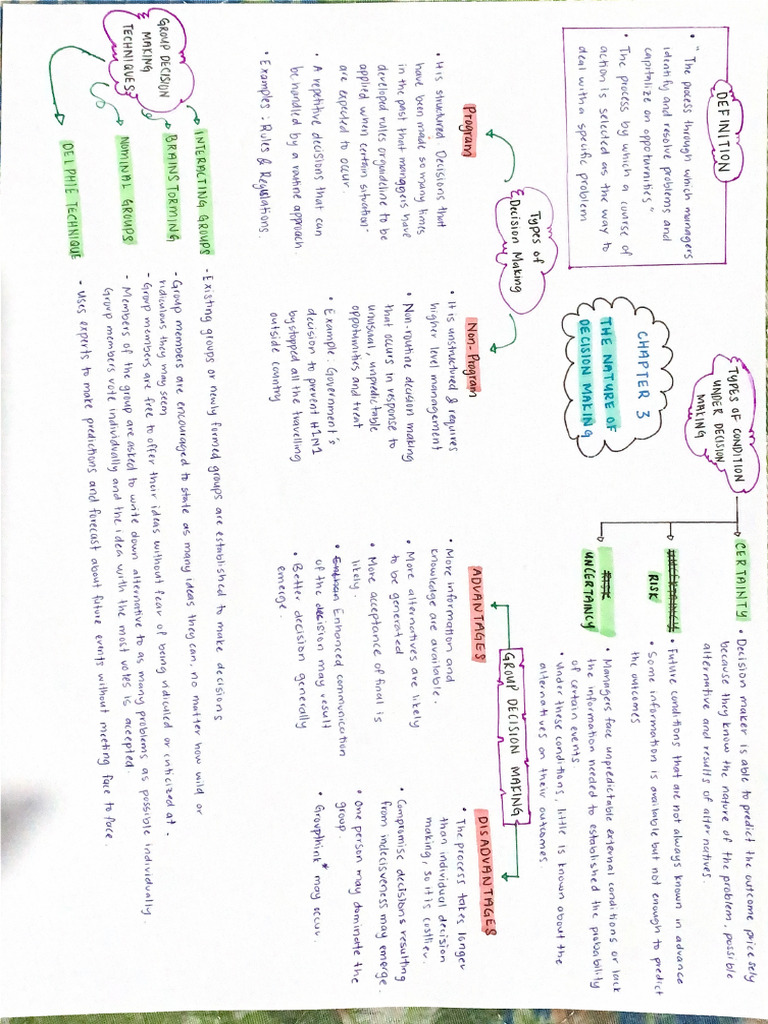 DEFINITION
• "The process through which managers
identify and resolve problems and
capitalize on oppoturnities"
• The process by which a course of
action is selected as the way to
deal with a specific problem
CHAPTER 3
THE NATURE OF
DECISION MAKING
TYPES OF CONDITION
UNDER DECISION
MAKING
CERTAINTY
• Decision maker is able to predict the outcome pricesely
because they know the nature of the problem, possible
alternative and results of alternatives.
UNCERTAINCY
RISK
• Future conditions that are not always known in advance
• Some information is available but not enough to predict
the outcomes
RISK
UNCERTAINCY
• Managers face unpredictable external conditions or lack
the information needed to established the probability
of certain events
• Under these conditions, little is known about the
alternatives on their outcomes.
Types of
Decision Making
Program
• It is structured. Decisions that
have been made so many times
in the past that managers have
developed rules or guideline to be
applied when certain situation
are expected to occur.
• A repetitive decisions that can
be handled by a routine approach
• Examples : Rules & Regulations.
Non-Program
• It is unstructured & requires
higher level management
• Non-routine decision making
that occurs in response to
unusual, unpredictable
oppotunities and treat
• Example: Government's
decision to prevent H1N1
by stopped all the travelling
outside country
GROUP DECISION MAKING
ADVANTAGES
• More information and
knowledge are available.
• More alternatives are likely
to be generated
• More acceptance of final is
likely.
• Enhanced communication
of the decision may result
• Better decision generally
emerge.
DISADVANTAGES
• The process takes longer
than individual decision
making, so it is costlier.
• Compromise decisions resulting
from indecisveness may emerge.
• One person may dominate the
group.
• Groupthink* may occur.
GROUP DECISION
MAKING
TECHNIQUES
INTERACTING GROUPS
- Existing groups or newly formed groups are established to make decisions
BRAINSTORMING
- Group members are encouraged to state as many ideas they can, no matter how wild or
ridiculous they may seem
- Group members are free to offer their ideas without fear of being ridiculed or criticized at.
NOMINAL GROUPS
- Members of the group are asked to write down alternative to as many problems as possible individually.
Group members vote individually and the idea with the most votes is accepted.
DELPHIE TECHNIQUE
- Uses experts to make predictions and forecast about future events without meeting face to face.